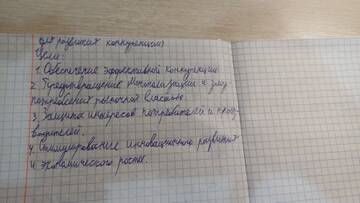 для развития конкуренции)
Цели:
1. Обеспечение эффективной конкуренции
2. Предотвращение монополизации и злоу
потребления рыночной властью
3. Защита интересов потребителей и произ
водителей.
4. Стимулирование инновационного развития
и экономического роста.